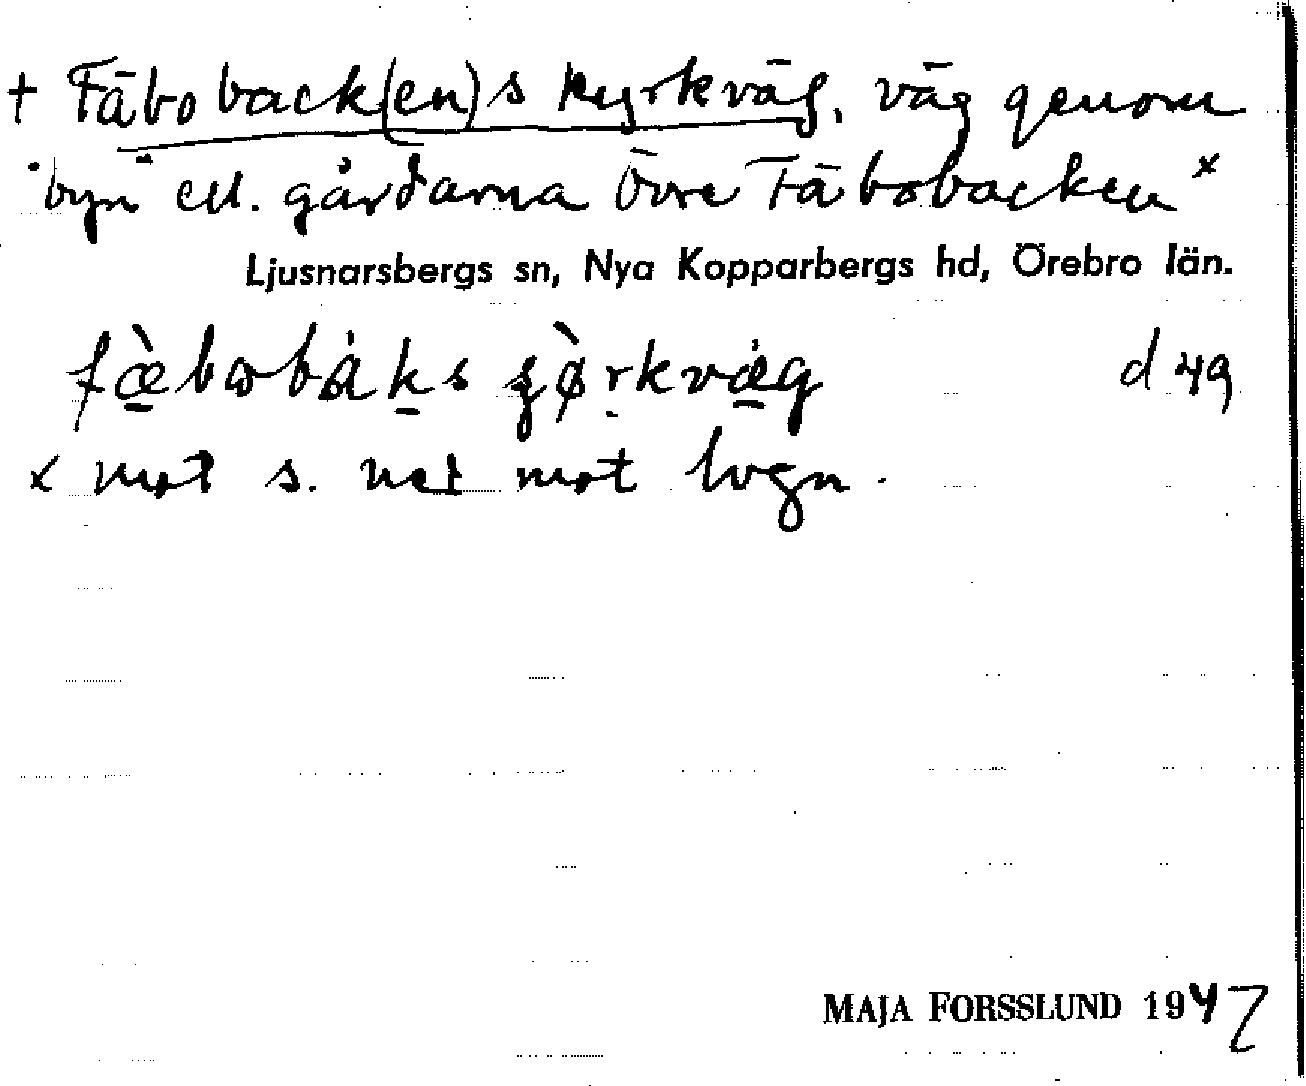 + Fäboback(en)s kyrkväg, väg genom
"byn" ell. gårdarna Övre Fäbobacken x
Ljusnarsbergs sn, Nya Kopparbergs hd, Örebro län.
d 49
x mot s. ned mot
MAJA FORSSLUND 1947